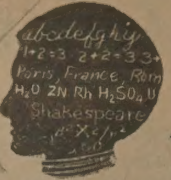 abcdefghij
1+2=3 2+2=3 3+
Paris, France, Rom
H₂O ZN Rh H₂SO₄ U
Shakespeare